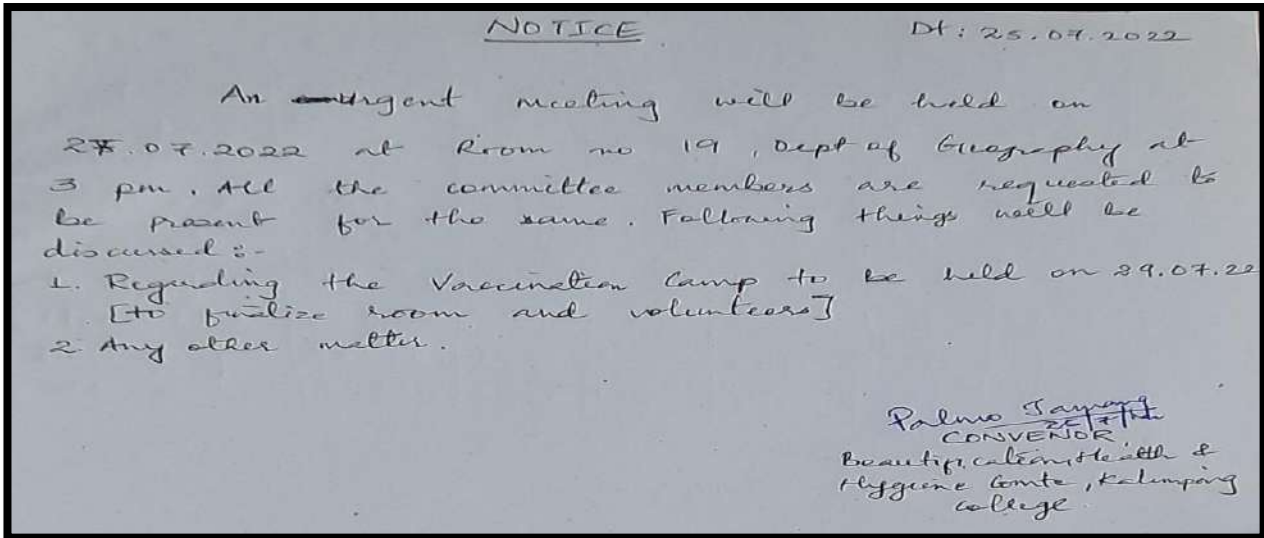 NOTICE Dt: 25.07.2022
An urgent meeting will be held on
.07.2022 at Room no 19, Dept of Geography at
3 pm. All the committee members are requested to
be present for the same. Following things will be
discussed :-
1. Regarding the Vaccination Camp to be held on 29.07.22
[to finalize room and volunteers]
2. Any other matter.
Palmo
CONVENOR
Beautification, Health &
Hygiene Comte, Kalimpong
College.